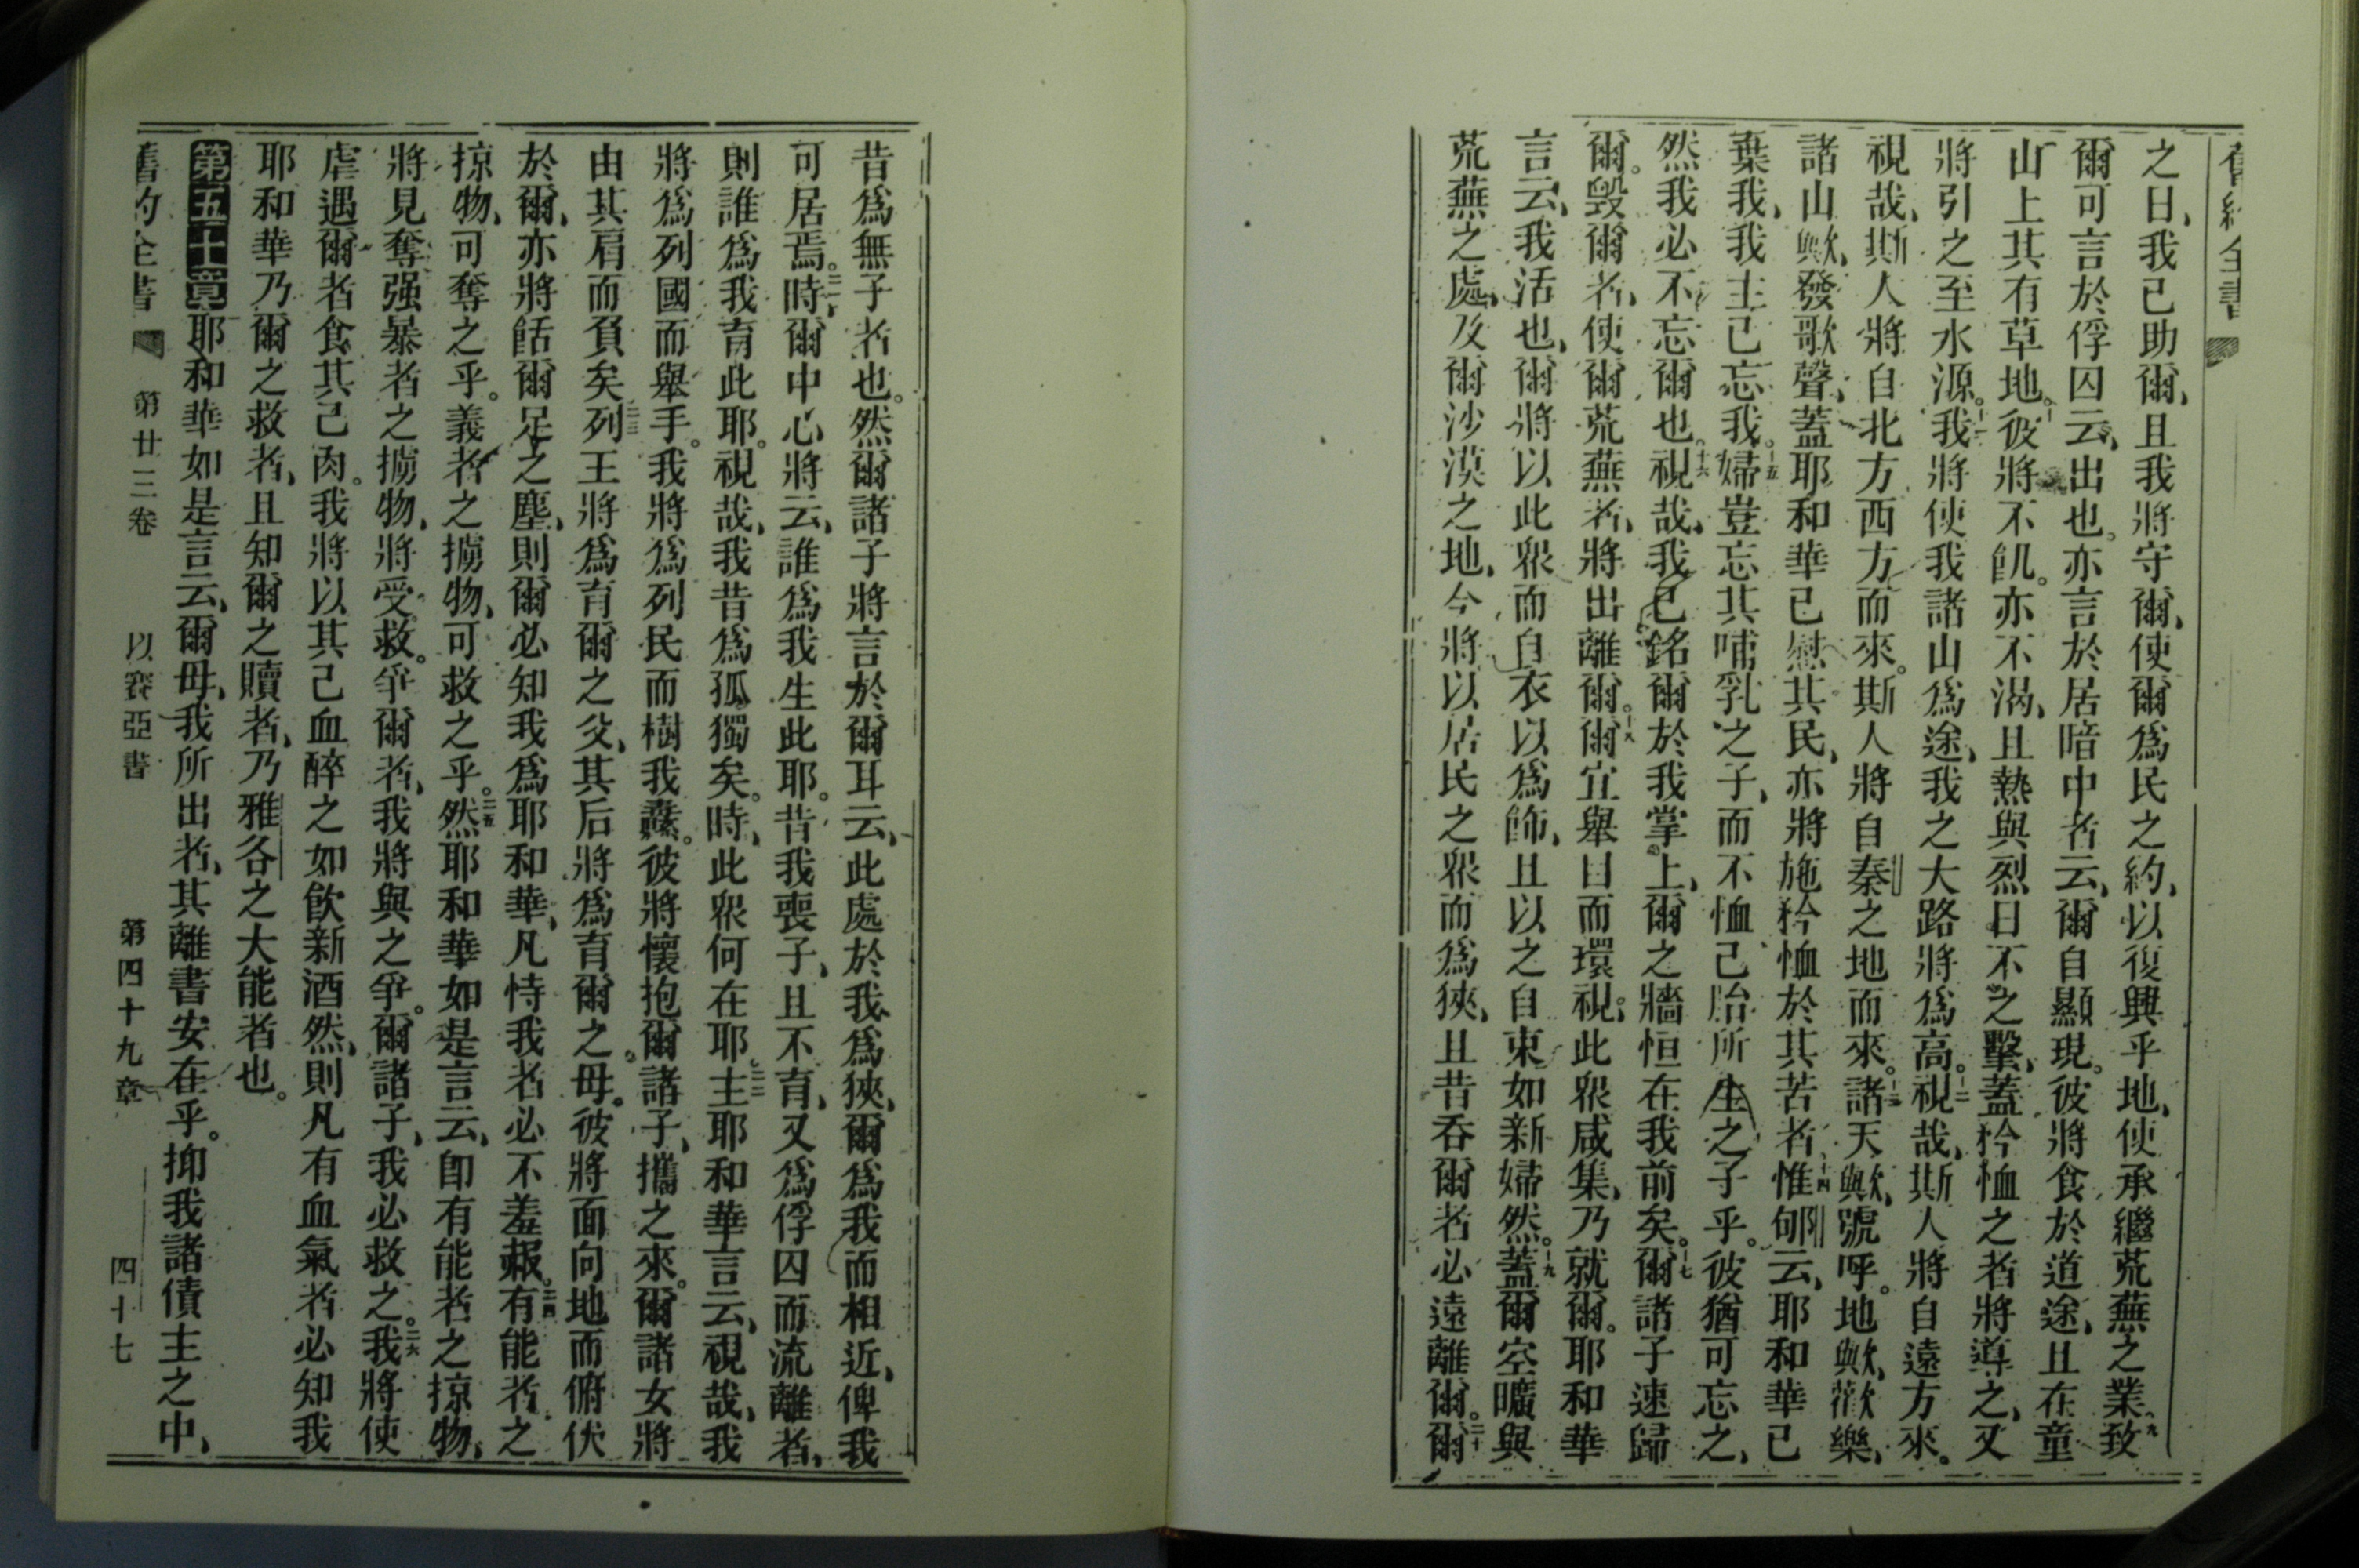 舊約全書
之日、我已助爾、且我將守爾、使爾爲民之約、以復興乎地、使承繼荒蕪之業、九致
爾可言於俘囚云、出也。亦言於居暗中者云、爾自顯現。彼將食於道途、且在童
山上其有草地。十彼將不飢。亦不渴、且熱與烈日不之擊、蓋矜恤之者將導之、又
將引之至水源。十一我將使我諸山爲途、我之大路將爲高。十二視哉、斯人將自遠方來。
視哉、斯人將自北方西方而來。斯人將自秦之地而來。十三諸天歟、號呼。地歟、歡樂、
諸山歟、發歌聲、蓋耶和華已慰其民、亦將施矜恤於其苦者、十四惟郇云、耶和華已
棄我、我主已忘我。十五婦豈忘其哺乳之子、而不恤己胎所生之子乎。彼猶可忘之、
然我必不忘爾也。十六視哉、我已銘爾於我掌上、爾之牆恒在我前矣。十七爾諸子速歸
爾。毀爾者、使爾荒蕪者、將出離爾。十八爾宜舉目而環視。此眾咸集、乃就爾。耶和華
言云、我活也、爾將以此眾而自衣以爲飾、且以之自束如新婦然。十九蓋爾空曠與
荒蕪之處、及爾沙漠之地、今將以居民之眾而爲狹、且昔吞爾者必遠離爾。二十爾
昔爲無子者也。然爾諸子將言於爾耳云、此處於我爲狹、爾爲我而相近、俾我
可居焉。二一時、爾中心將云、誰爲我生此耶。昔我喪子、且不育、又爲俘囚而流離者、
則誰爲我育此耶。視哉、我昔爲孤獨矣。時、此眾何在耶。二二主耶和華言云、視哉、我
將爲列國而舉手。我將爲列民而樹我纛。彼將懷抱爾諸子、攜之來。爾諸女將
由其肩而負矣。二三列王將爲育爾之父、其后將爲育爾之母。彼將面向地而俯伏
於爾、亦將餂爾足之塵、則爾必知我爲耶和華、凡恃我者必不羞赧。二四有能者之
掠物、可奪之乎。義者之擄物、可救之乎。二五然耶和華如是言云、卽有能者之掠物、
將見奪、强暴者之擄物、將受救。爭爾者、我將與之爭。爾諸子、我必救之。二六我將使
虐遇爾者食其己肉。我將以其己血醉之如飲新酒然、則凡有血氣者必知我
耶和華乃爾之救者、且知爾之贖者、乃雅各之大能者也。
第五十章耶和華如是言云、爾母、我所出者、其離書安在乎。抑我諸債主之中、
舊約全書 第廿三卷 以賽亞書 第四十九章 四十七